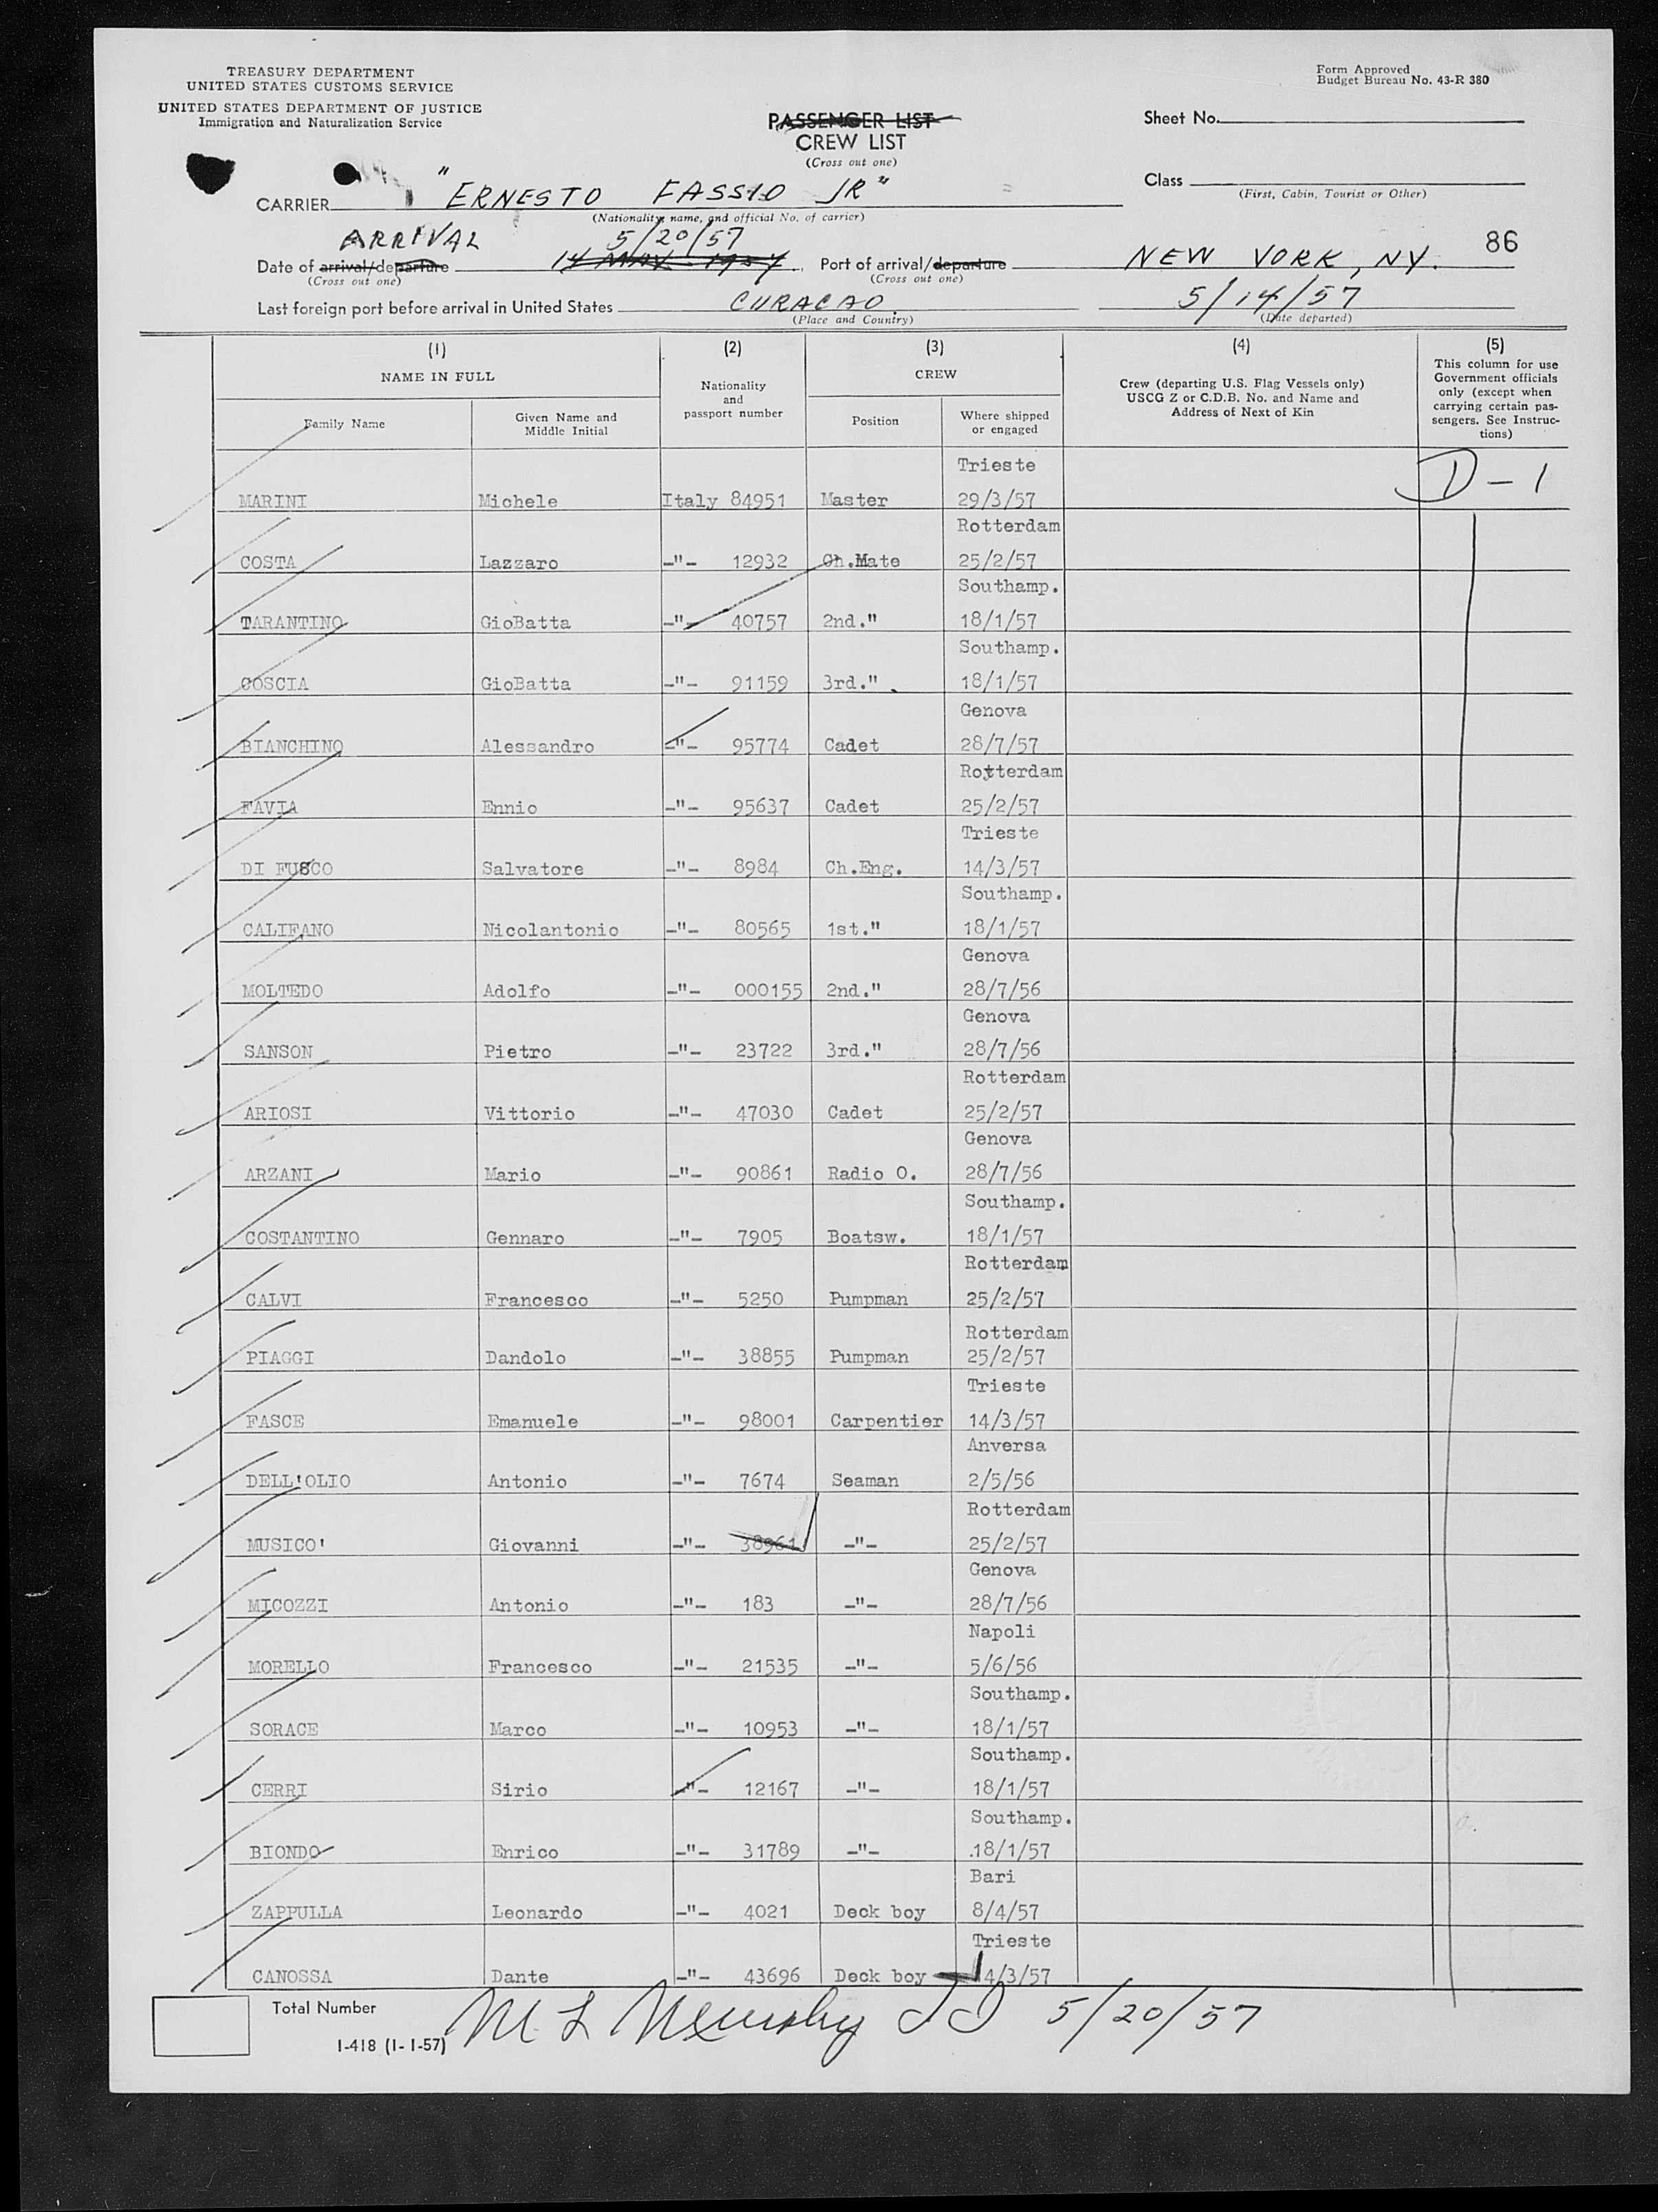 TREASURY DEPARTMENT
UNITED STATES CUSTOMS SERVICE
UNITED STATES DEPARTMENT OF JUSTICE
Immigration and Naturalization Service
Form Approved
Budget Bureau No. 43-R 380
PASSENGER LIST
CREW LIST
(Cross out one)
Sheet No.
Class
(First, Cabin, Tourist or Other)
CARRIER "ERNESTO FASSIO JR"
(Nationality, name, and official No. of carrier)
ARRIVAL 5/20/57
Date of arrival/departure 14 MAY 1957 Port of arrival/departure NEW YORK, NY. 86
(Cross out one) (Cross out one)
Last foreign port before arrival in United States CURACAO 5/14/57
(Place and Country) (Date departed)
(1) (2) (3) (4) (5)
NAME IN FULL
Nationality and passport number
CREW
Crew (departing U.S. Flag Vessels only) USCG Z or C.D.B. No. and Name and Address of Next of Kin
This column for use Government officials only (except when carrying certain passengers. See Instructions)
Family Name Given Name and Middle Initial Position Where shipped or engaged
Trieste
MARINI Michele Italy 84951 Master 29/3/57 D-1
Rotterdam
COSTA Lazzaro -"- 12932 Ch.Mate 25/2/57
Southamp.
TARANTINO GioBatta -"- 40757 2nd." 18/1/57
Southamp.
COSCIA GioBatta -"- 91159 3rd." 18/1/57
Genova
BIANCHINO Alessandro -"- 95774 Cadet 28/7/57
Rotterdam
FAVIA Ennio -"- 95637 Cadet 25/2/57
Trieste
DI FUSCO Salvatore -"- 8984 Ch.Eng. 14/3/57
Southamp.
CALIFANO Nicolantonio -"- 80565 1st." 18/1/57
Genova
MOLTEDO Adolfo -"- 000155 2nd." 28/7/56
Genova
SANSON Pietro -"- 23722 3rd." 28/7/56
Rotterdam
ARIOSI Vittorio -"- 47030 Cadet 25/2/57
Genova
ARZANI Mario -"- 90861 Radio O. 28/7/56
Southamp.
COSTANTINO Gennaro -"- 7905 Boatsw. 18/1/57
Rotterdam
CALVI Francesco -"- 5250 Pumpman 25/2/57
Rotterdam
PIAGGI Dandolo -"- 38855 Pumpman 25/2/57
Trieste
FASCE Emanuele -"- 98001 Carpentier 14/3/57
Anversa
DELL'OLIO Antonio -"- 7674 Seaman 2/5/56
Rotterdam
MUSICO' Giovanni -"- 38961 -"- 25/2/57
Genova
MICOZZI Antonio -"- 183 -"- 28/7/56
Napoli
MORELLO Francesco -"- 21535 -"- 5/6/56
Southamp.
SORACE Marco -"- 10953 -"- 18/1/57
Southamp.
CERRI Sirio -"- 12167 -"- 18/1/57
Southamp.
BIONDO Enrico -"- 31789 -"- .18/1/57
Bari
ZAPPULLA Leonardo -"- 4021 Deck boy 8/4/57
Trieste
CANOSSA Dante -"- 43696 Deck boy 14/3/57
Total Number
M L 5/20/57
I-418 (1-1-57)